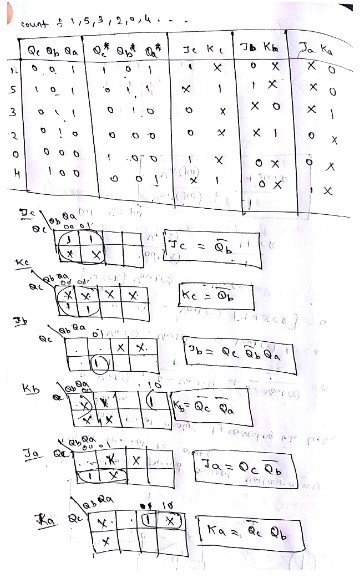 count : 1, 5, 3, 2, 0, 4 . . .
Qc Qb Qa Qc* Qb* Qa* Jc Kc Jb Kb Ja Ka
1 0 0 1 1 0 1 1 X 0 X X 0
5 1 0 1 0 1 1 X 1 1 X X 0
3 0 1 1 0 1 0 0 X X 0 X 1
2 0 1 0 0 0 0 0 X X 1 0 X
0 0 0 0 1 0 0 1 X 0 X 0 X
4 1 0 0 0 0 1 X 1 0 X 1 X
Jc Qc QbQa
00 01
1 1
X X
Jc = Q̅b
Kc Qc QbQa
00 01
X X X X
1 1
Kc = Q̅b
Jb Qc QbQa
01
X X
1
Jb = Qc Q̅b Qa
Kb Qc QbQa
10
X X 1
X X
Kb = Q̅c Q̅a
Ja Qc QbQa
00 01
X X
1 X
Ja = Qc Q̅b
Ka Qc QbQa
10
X 1 X
X
Ka = Q̅c Qb